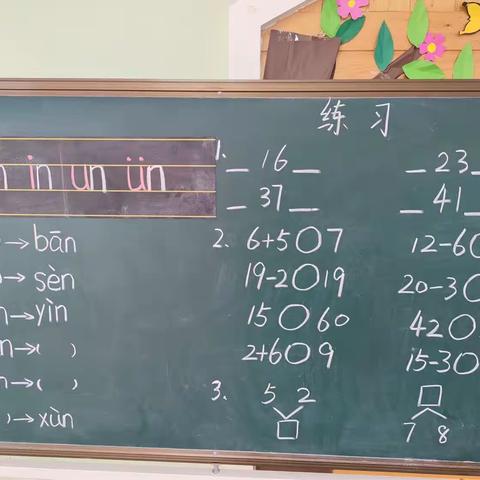 练习
n in un ün
→bān
→sèn
n→yìn
n→( )
n→( )
)→xùn
1. _ 16 _ _ 23
_ 37 _ _ 41
2. 6+5○7 12-6○
19-2○19 20-3○
15○60 42○
2+6○9 15-3○
3. 5 2 □
□ 7 8